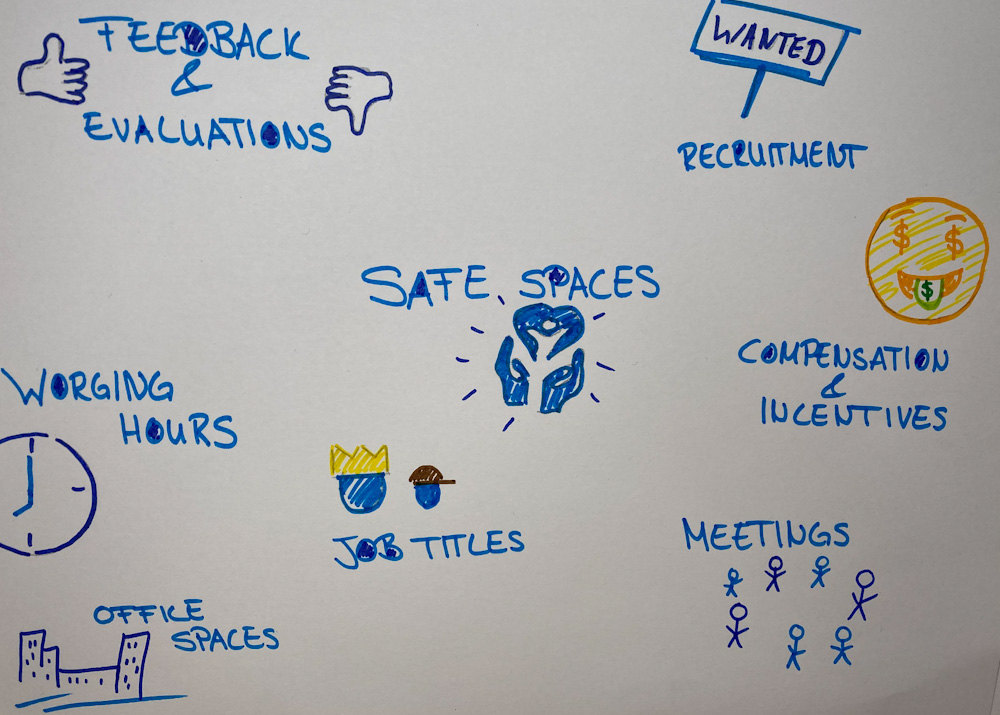 FEEDBACK
&
EVALUATIONS
WANTED
RECRUITMENT
$ $
$
SAFE SPACES
COMPENSATION
&
INCENTIVES
WORGING
HOURS
JOB TITLES
MEETINGS
OFFICE
SPACES